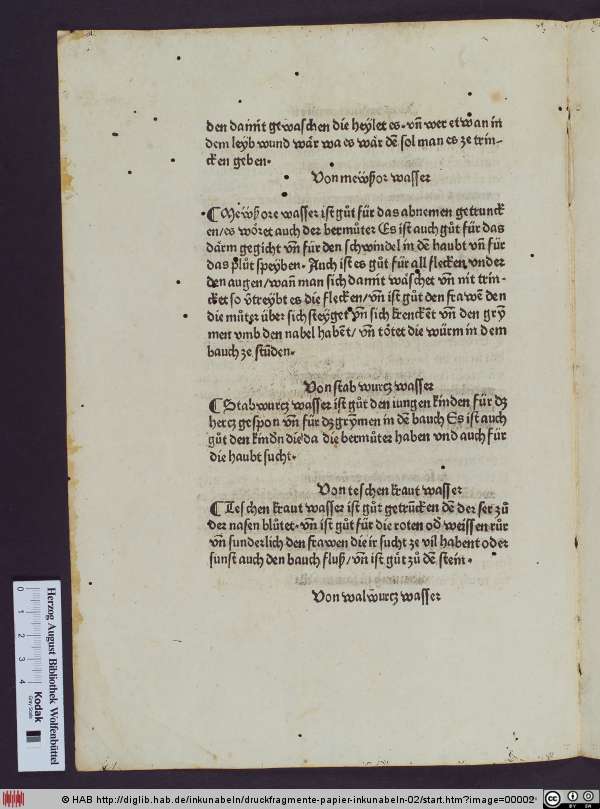 den damit gewaschen die heylet es. vn̄ wer etwan in
dem leyb wund wår wa es wår dē sol man es ze trin-
cken geben.
Von mewßor wasser
¶ Mewßore wasser ist gůt für das abnemen getrunck
en/es wōret auch der bermůter Es ist auch gůt für das
dārm gegicht vn̄ für den schwindel in dē haubt vn̄ für
das plůt speyben. Auch ist es gůt für all flecken vnder
den augen/wan̄ man sich damit wäschet vn̄ nit trin-
cket so v̄treybt es die flecken/vn̄ ist gůt den frawē den
die můter über sich steyget vn̄ sich krenckēt vn̄ den gry̅
men vmb den nabel habent/ vn̄ tōtet die wůrm in dem
bauch ze stūden.
Von stab wurcz wasser
¶ Stabwurcz wasser ist gůt den iungen kinden für dz
hercz gespon vn̄ für dz gry̅men in dē bauch Es ist auch
gůt den kindn̄ die da die bermůter haben vnd auch für
die haubt sucht.
Von teschen kraut wasser
¶ Teschen kraut wasser ist gůt getrūcken dē der ser zů
der nasen blůtet. vn̄ ist gůt für die roten od̄ weissen růr
vn̄ sunderlich den frawen die ir sucht ze vil habent oder
sunst auch den bauch fluß/vn̄ ist gůt zů dē stein.
Von walwurcz wasser
0 1 2 3 4
Herzog August Bibliothek Wolfenbüttel
Kodak
Gray Scale
© HAB http://diglib.hab.de/inkunabeln/druckfragmente-papier-inkunabeln-02/start.htm?image=00002
CC BY SA